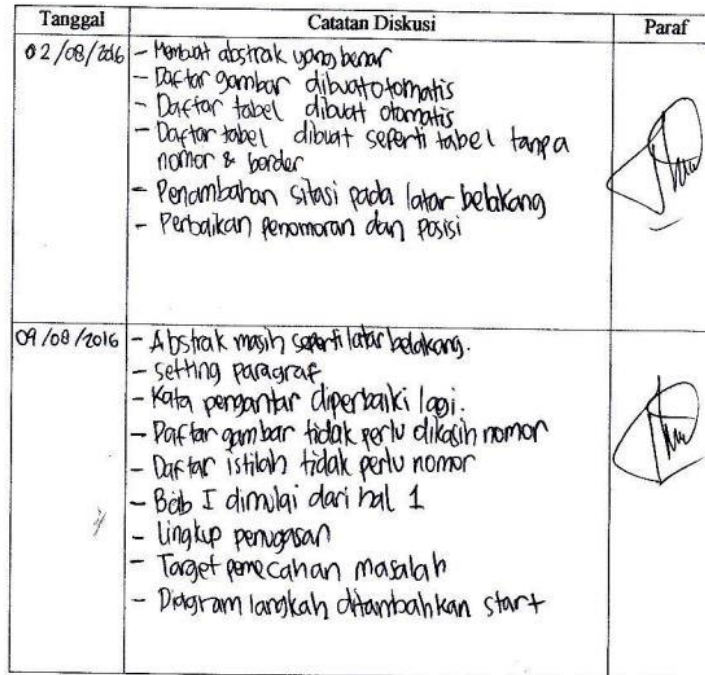 Tanggal Catatan Diskusi Paraf
02/08/2016 - Membuat abstrak yang benar
- Daftar gambar dibuat otomatis
- Daftar tabel dibuat otomatis
- Daftar tabel dibuat seperti tabel tanpa
nomor & border
- Penambahan sitasi pada latar belakang
- Perbaikan penomoran dan posisi
09/08/2016 - Abstrak masih seperti latar belakang.
- Setting paragraf
- Kata pengantar diperbaiki lagi.
- Daftar gambar tidak perlu dikasih nomor
- Daftar istilah tidak perlu nomor
- Bab I dimulai dari hal 1
- Lingkup penugasan
- Target pemecahan masalah
- Diagram langkah ditambahkan start